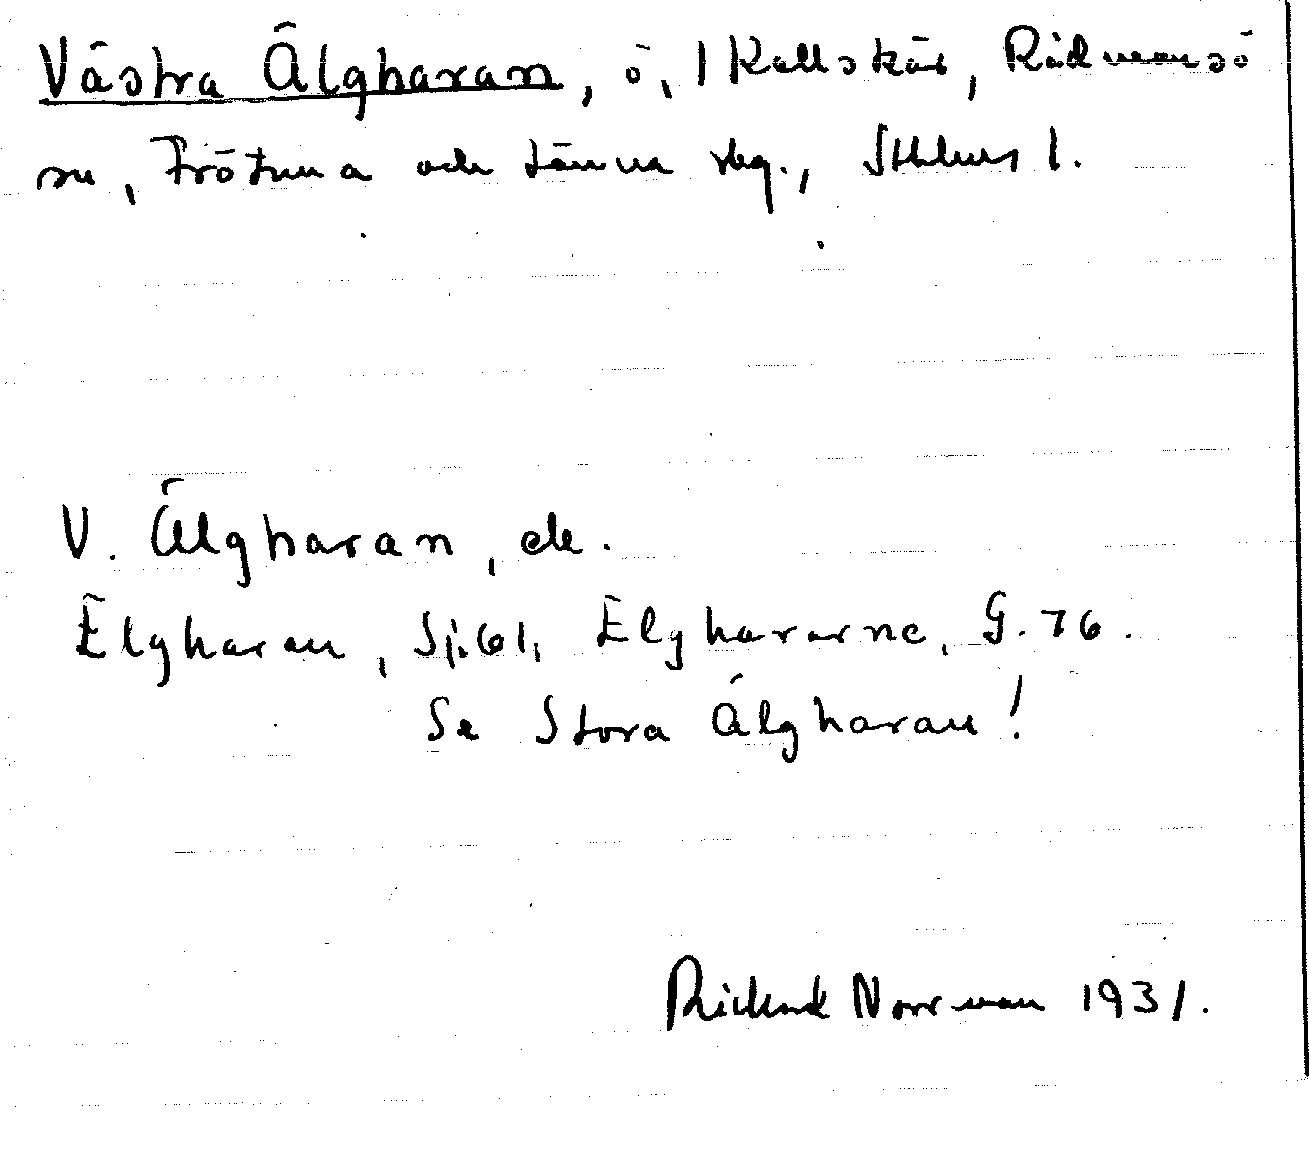 Västra Älgharan, ö, 1 Kallskär, Rådmansö
sn, Frötuna och Länna skg., Sthlms l.
V. Älgharan, ek.
Elgharan, Sj.61, Elghararne, G. 76.
Se Stora Älgharan!
Rickard Norrman 1931.